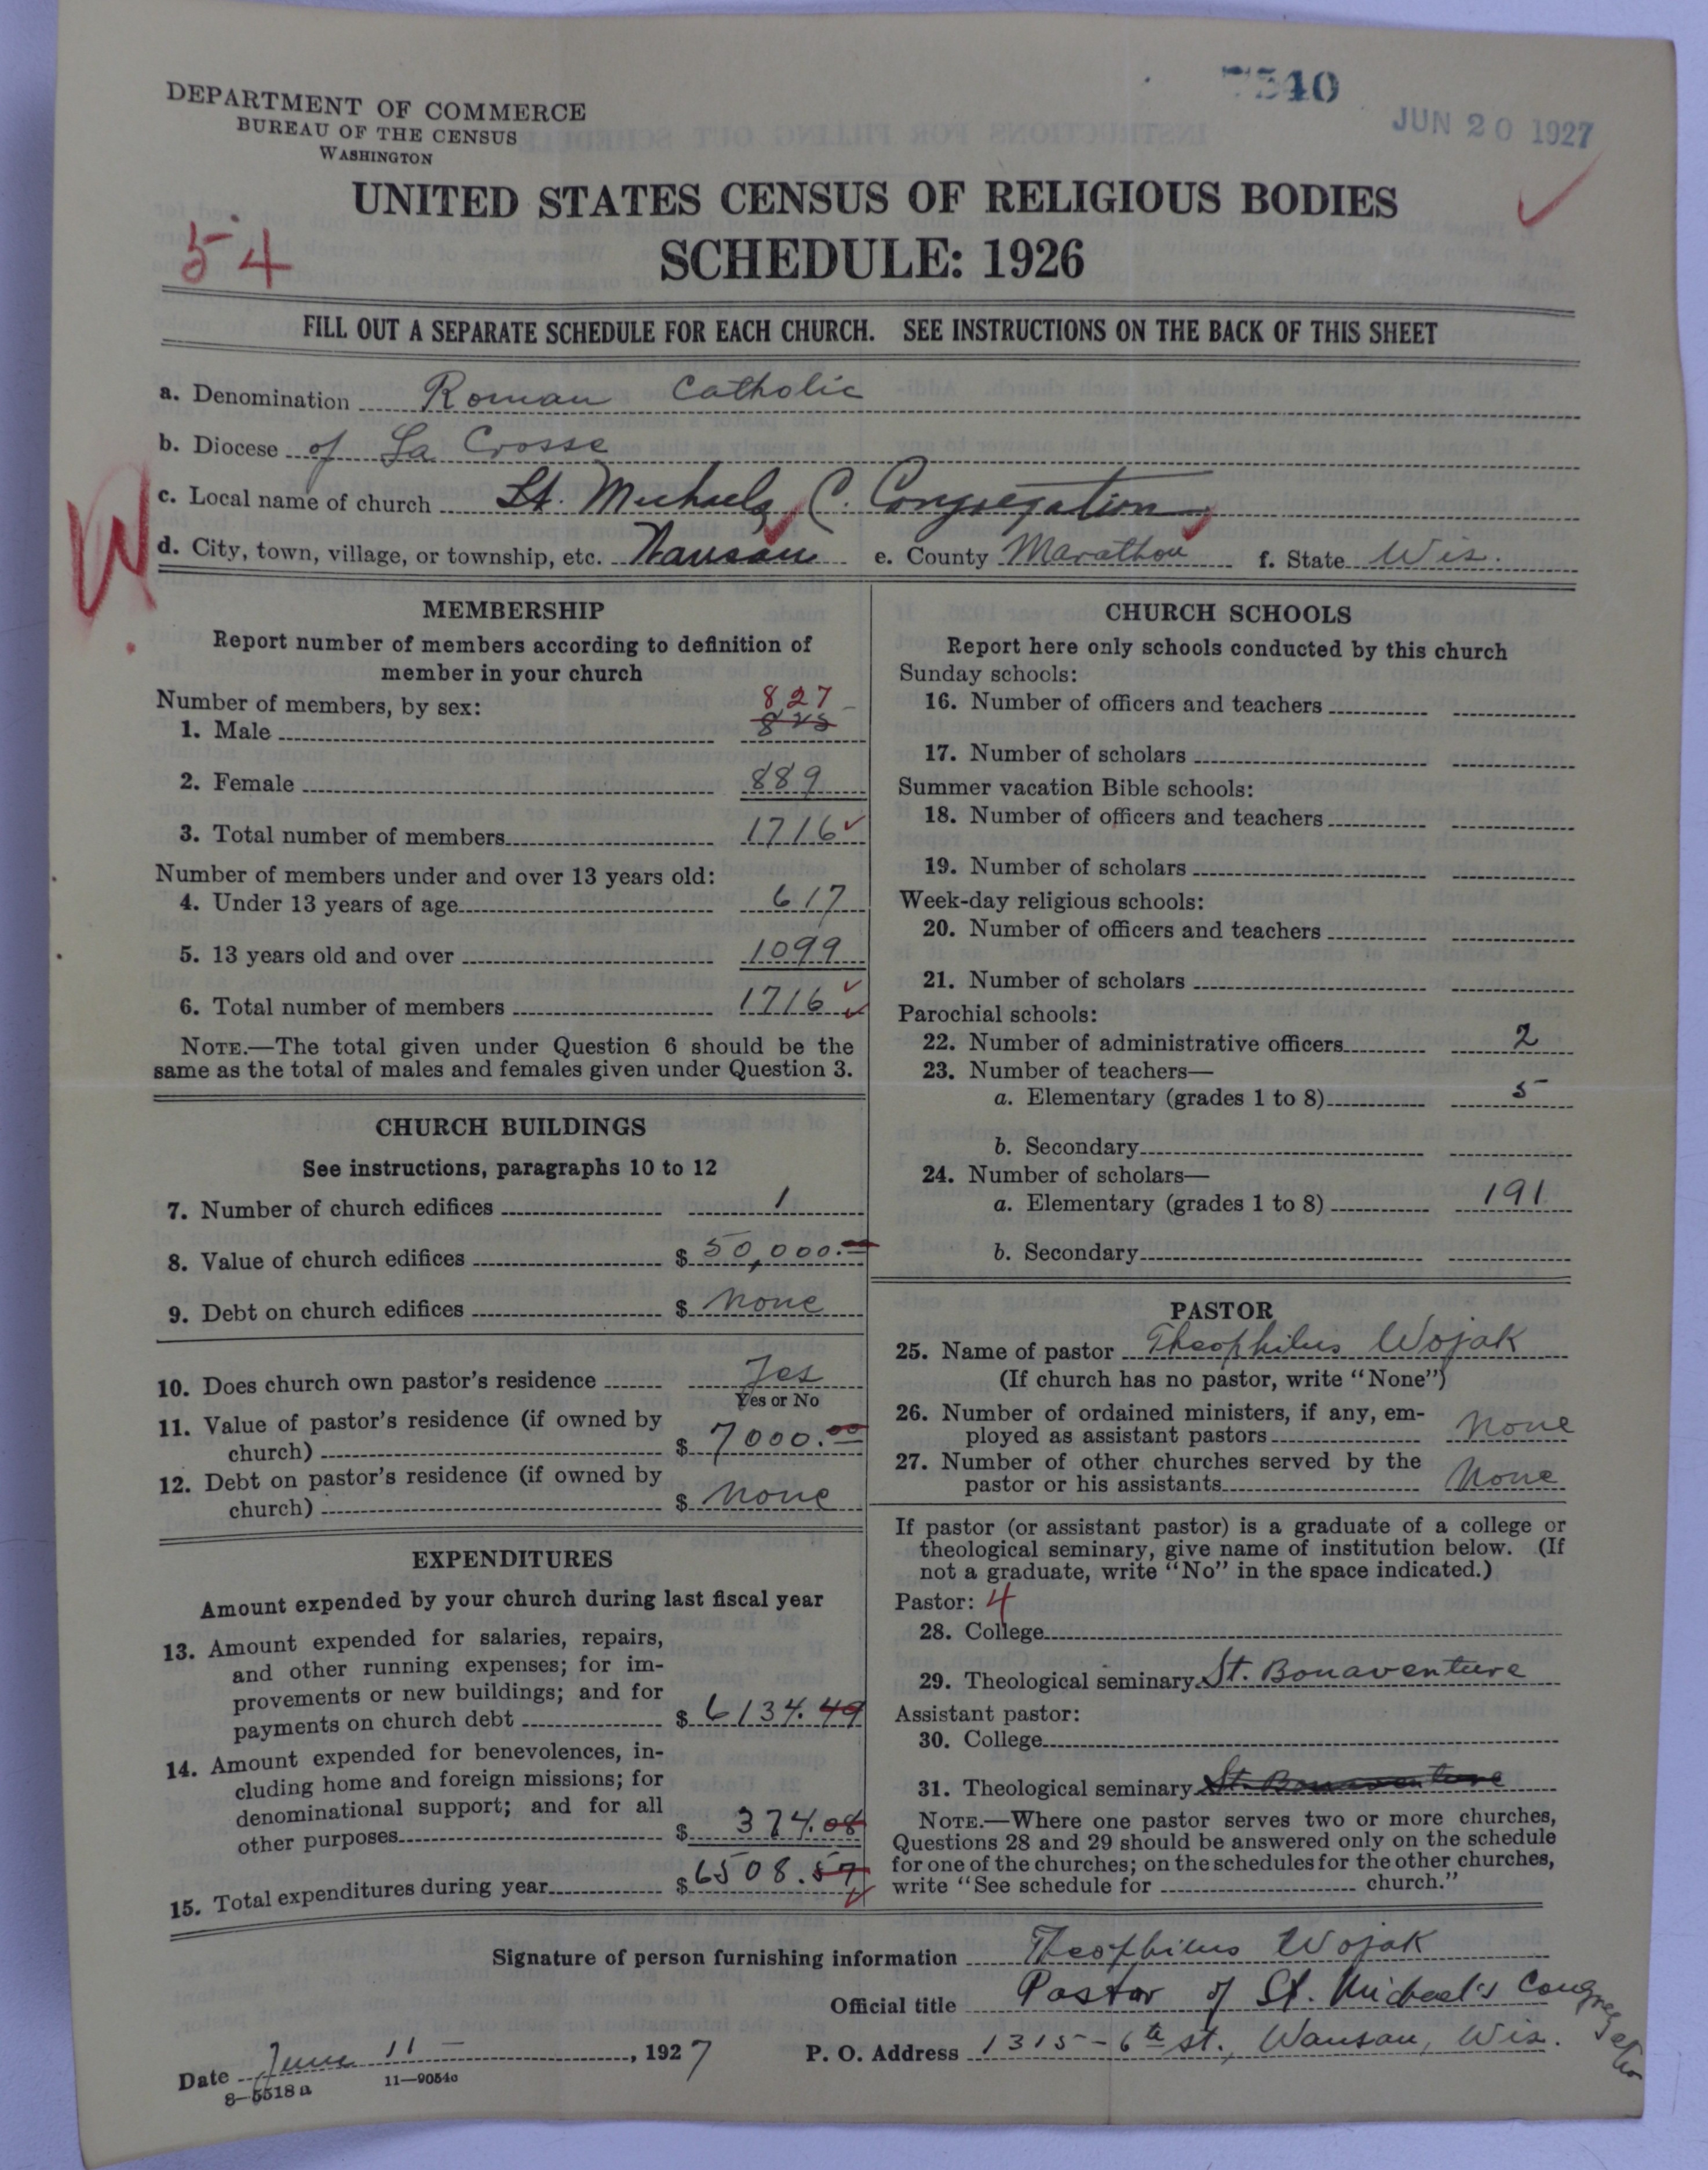 7540
JUN 20 1927
DEPARTMENT OF COMMERCE
BUREAU OF THE CENSUS
WASHINGTON
UNITED STATES CENSUS OF RELIGIOUS BODIES
SCHEDULE: 1926
54
FILL OUT A SEPARATE SCHEDULE FOR EACH CHURCH. SEE INSTRUCTIONS ON THE BACK OF THIS SHEET
a. Denomination Roman Catholic
b. Diocese of La Crosse
c. Local name of church St. Michaels C. Congregation
W
d. City, town, village, or township, etc. Wausau e. County Marathon f. State Wis.
MEMBERSHIP
Report number of members according to definition of
member in your church
Number of members, by sex:
827
1. Male 828
2. Female 889
3. Total number of members 1716
Number of members under and over 13 years old:
4. Under 13 years of age 617
5. 13 years old and over 1099
6. Total number of members 1716
NOTE.—The total given under Question 6 should be the
same as the total of males and females given under Question 3.
CHURCH BUILDINGS
See instructions, paragraphs 10 to 12
7. Number of church edifices 1
8. Value of church edifices $ 50,000.—
9. Debt on church edifices $ none
10. Does church own pastor's residence Yes
Yes or No
11. Value of pastor's residence (if owned by
church) $ 7000.00
12. Debt on pastor's residence (if owned by
church) $ none
EXPENDITURES
Amount expended by your church during last fiscal year
13. Amount expended for salaries, repairs,
and other running expenses; for im-
provements or new buildings; and for
payments on church debt $ 6134.49
14. Amount expended for benevolences, in-
cluding home and foreign missions; for
denominational support; and for all
other purposes $ 374.08
15. Total expenditures during year $ 6508.57
CHURCH SCHOOLS
Report here only schools conducted by this church
Sunday schools:
16. Number of officers and teachers
17. Number of scholars
Summer vacation Bible schools:
18. Number of officers and teachers
19. Number of scholars
Week-day religious schools:
20. Number of officers and teachers
21. Number of scholars
Parochial schools:
22. Number of administrative officers 2
23. Number of teachers—
a. Elementary (grades 1 to 8) 5
b. Secondary
24. Number of scholars—
a. Elementary (grades 1 to 8) 191
b. Secondary
PASTOR
25. Name of pastor Theophilus Wojak
(If church has no pastor, write "None")
26. Number of ordained ministers, if any, em-
ployed as assistant pastors none
27. Number of other churches served by the
pastor or his assistants None
If pastor (or assistant pastor) is a graduate of a college or
theological seminary, give name of institution below. (If
not a graduate, write "No" in the space indicated.)
Pastor: 4
28. College
29. Theological seminary St. Bonaventure
Assistant pastor:
30. College
31. Theological seminary St. Bonaventure
NOTE.—Where one pastor serves two or more churches,
Questions 28 and 29 should be answered only on the schedule
for one of the churches; on the schedules for the other churches,
write "See schedule for church."
Signature of person furnishing information Theophilus Wojak
Official title Pastor of St. Michael's Congregation
Date June 11 —, 1927 P. O. Address 1315 - 6th st., Wausau, Wis.
8—5518a 11—9054c